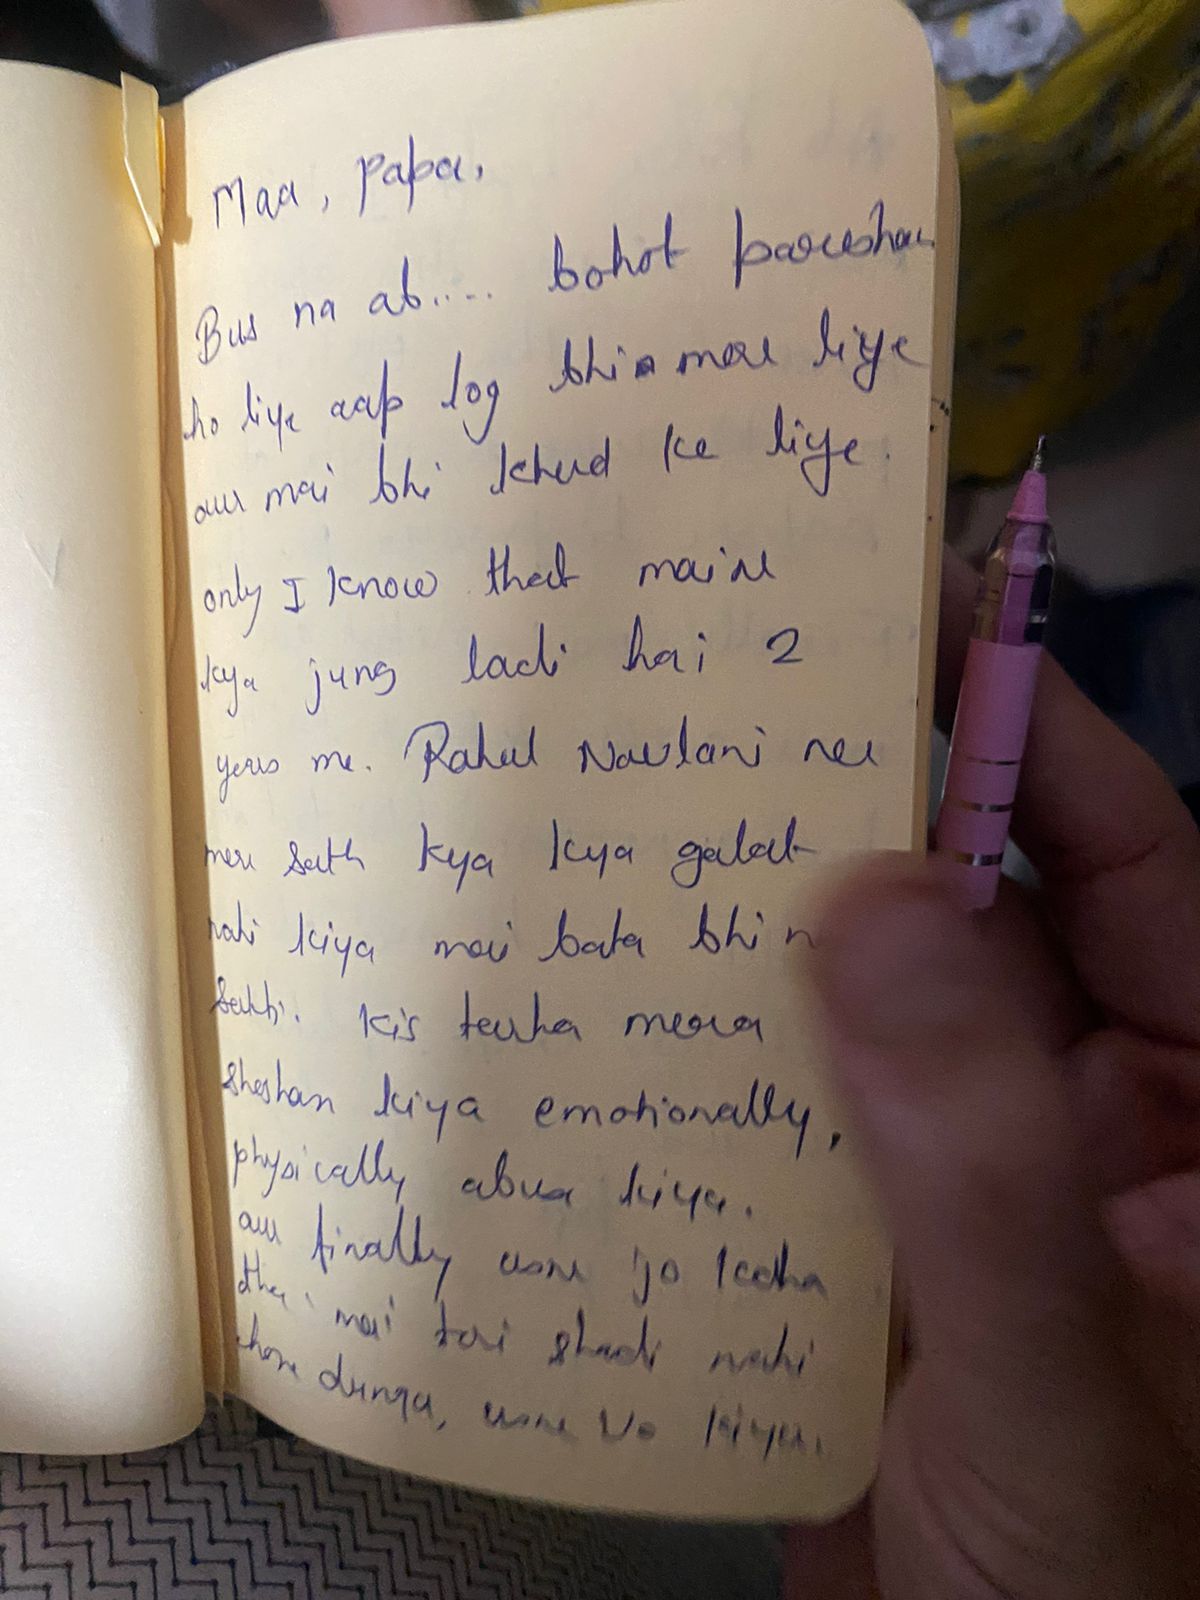 Maa, papa,
Bus na ab.... bohot pareshan
ho liye aap log bhi mere liye
aur mai bhi khud ke liye.
only I know that maine
kya jung ladi hai 2
years me. Rahul Navlani nee
mere sath kya kya galat
nahi kiya mai bata bhi n
sakti. Kis tarha mera
shoshan kiya emotionally,
physically abuse kiya.
aur finally usne jo kaha
tha, mai teri shadi nahi
hone dunga, usne vo kiya.